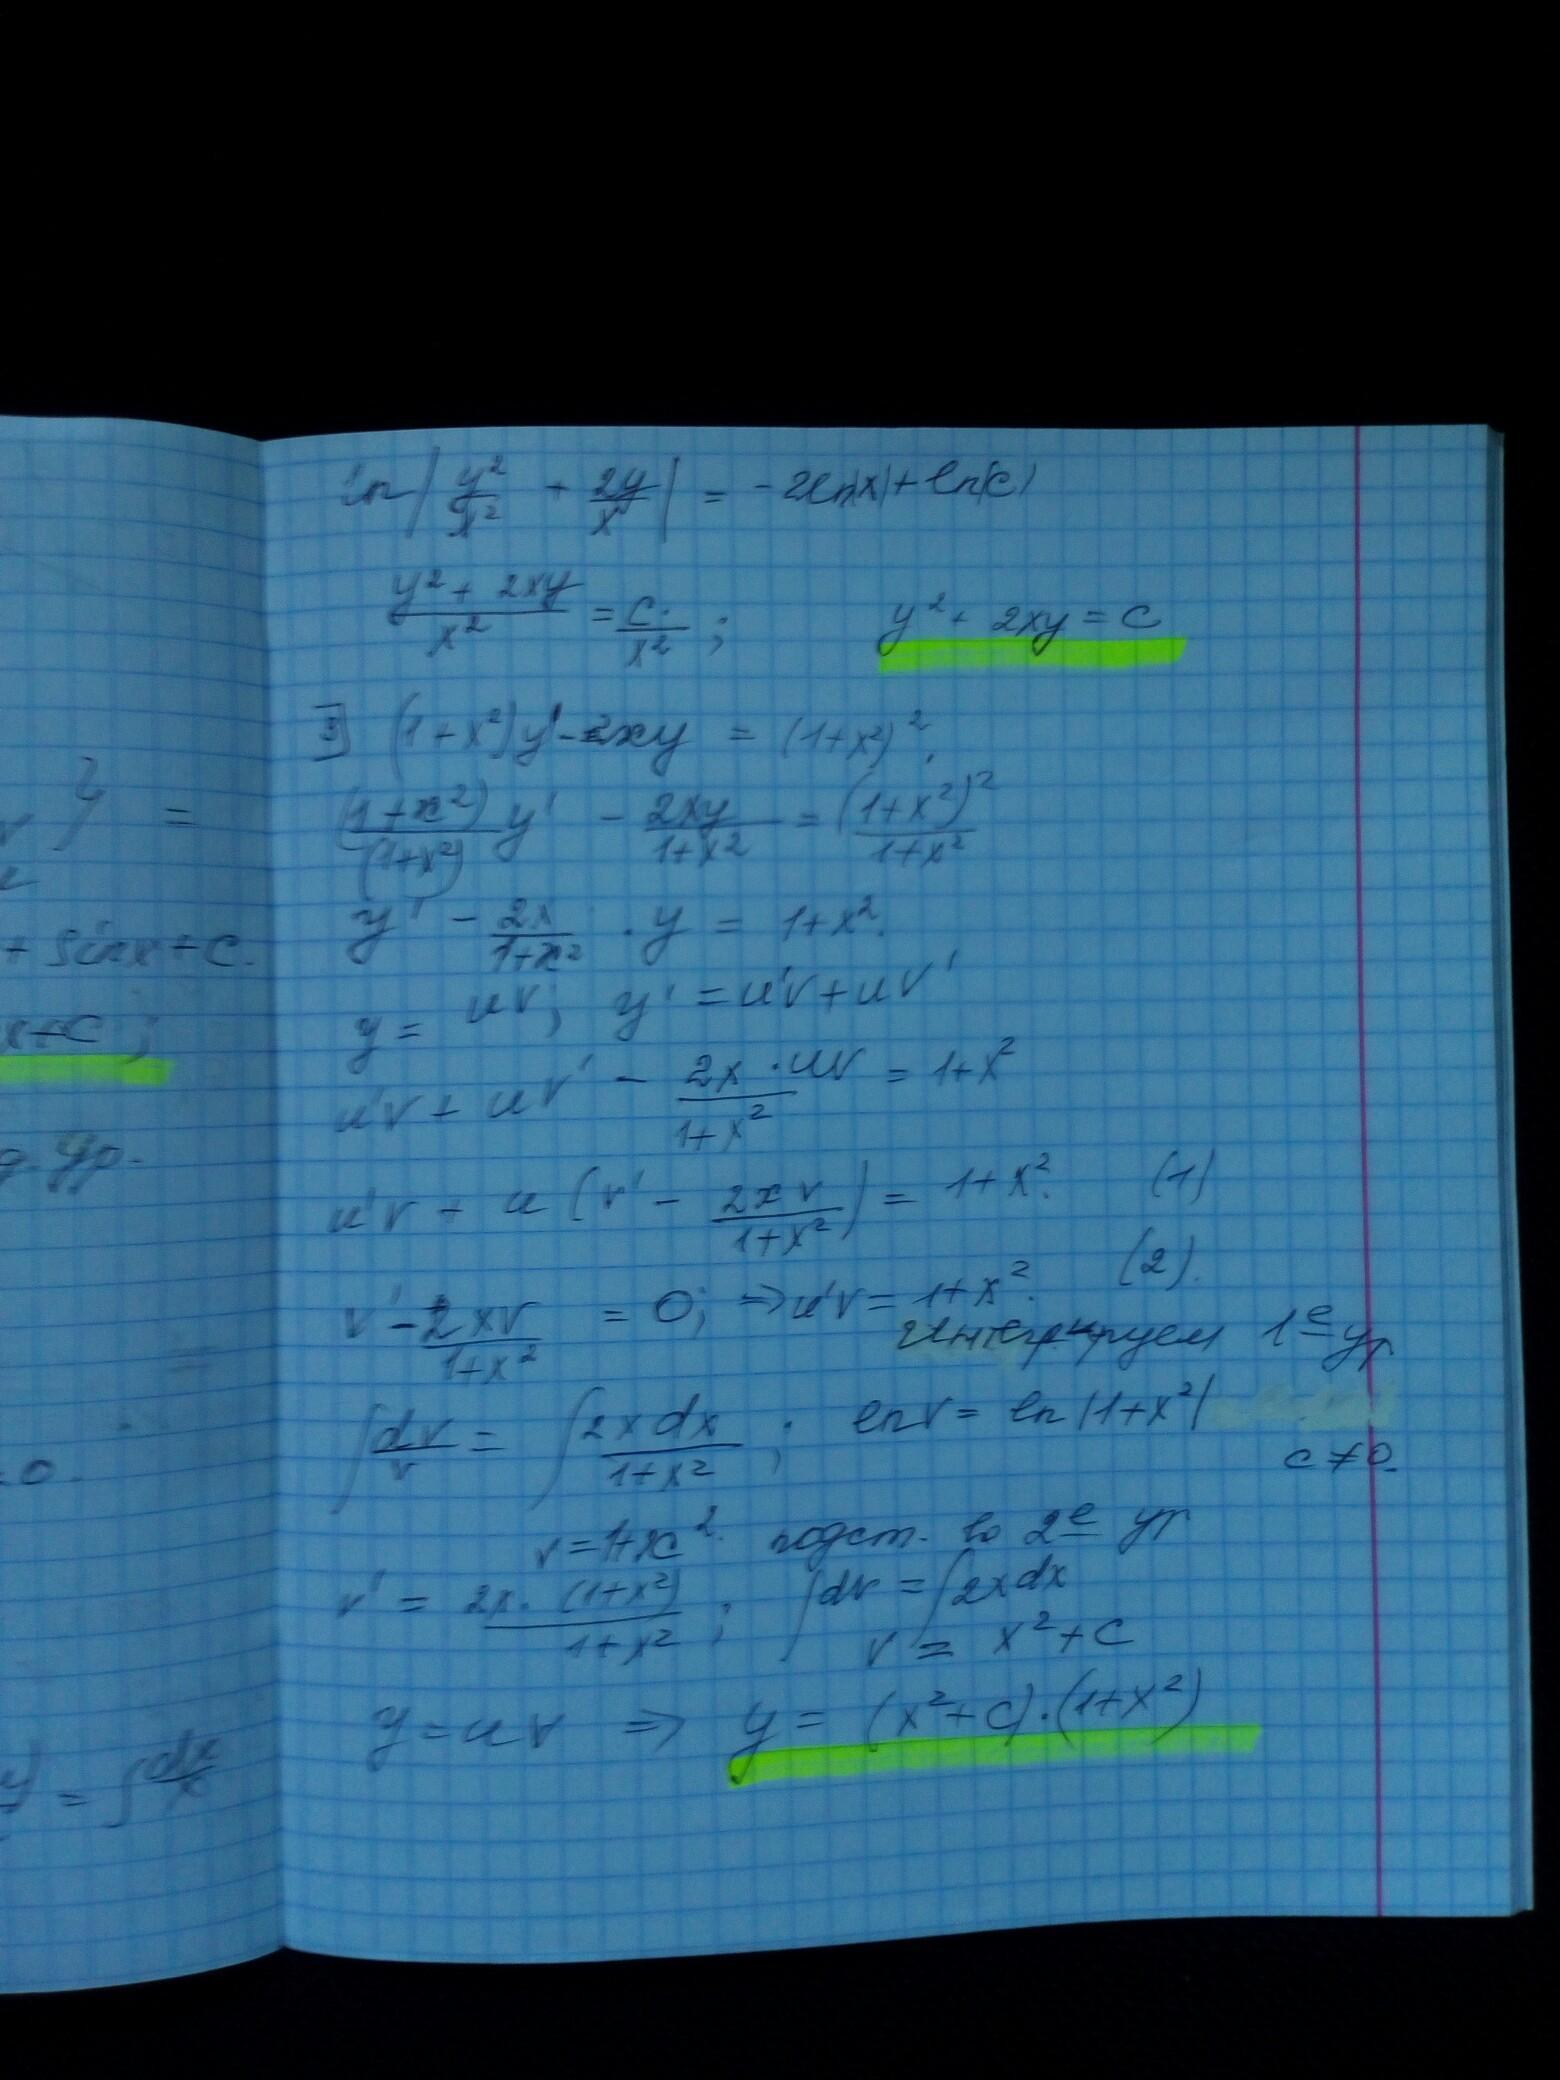 y =
+ sinx + c.
x+c;
ур.
= 0.
= ∫ dx/x
ln | y²/x² + 2y/x | = -2ln|x| + ln|c|
(y² + 2xy)/x² = c/x² ; y² + 2xy = c
3) (1+x²)y' - 2xy = (1+x²)².
(1+x²)/(1+x²) y' - 2xy/(1+x²) = (1+x²)²/(1+x²)
y' - 2x/(1+x²) · y = 1+x².
y = uv; y' = u'v + uv'
u'v + uv' - 2x·uv/(1+x²) = 1+x²
u'v + u (v' - 2xv/(1+x²)) = 1+x². (1)
v' - 2xv/(1+x²) = 0; ⇒ u'v = 1+x². (2).
Интегрируем 1е ур
∫ dv/v = ∫ 2xdx/(1+x²) ; lnv = ln|1+x²|
c ≠ 0.
v = 1+x². подст. во 2е ур
v' = 2x·(1+x²)/(1+x²) ; ∫dv = ∫2xdx
v = x² + c
y = uv ⇒ y = (x²+c)·(1+x²)